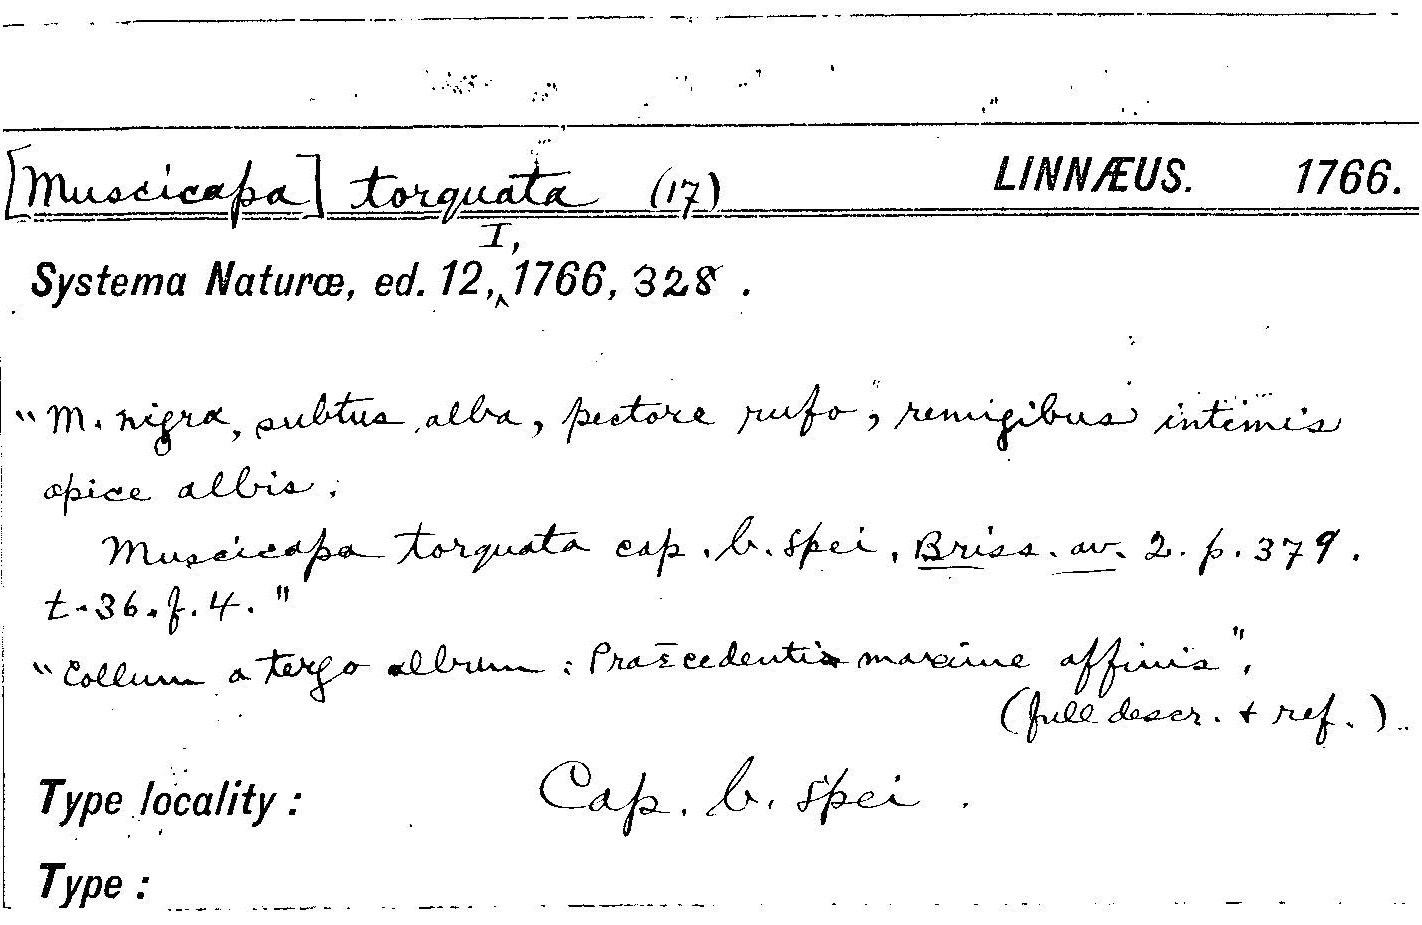 [Muscicapa] torquata (17) LINNÆUS. 1766.
Systema Naturæ, ed. 12, I, 1766, 328.
"M. nigra, subtus alba, pectore rufo, remigibus intimis
apice albis.
Muscicapa torquata cap. b. spei. Briss. av. 2. p. 379.
t. 36. f. 4."
"Collum a tergo album: Præcedentis maxime affinis".
(full descr. + ref.)
Type locality: Cap. b. spei.
Type: